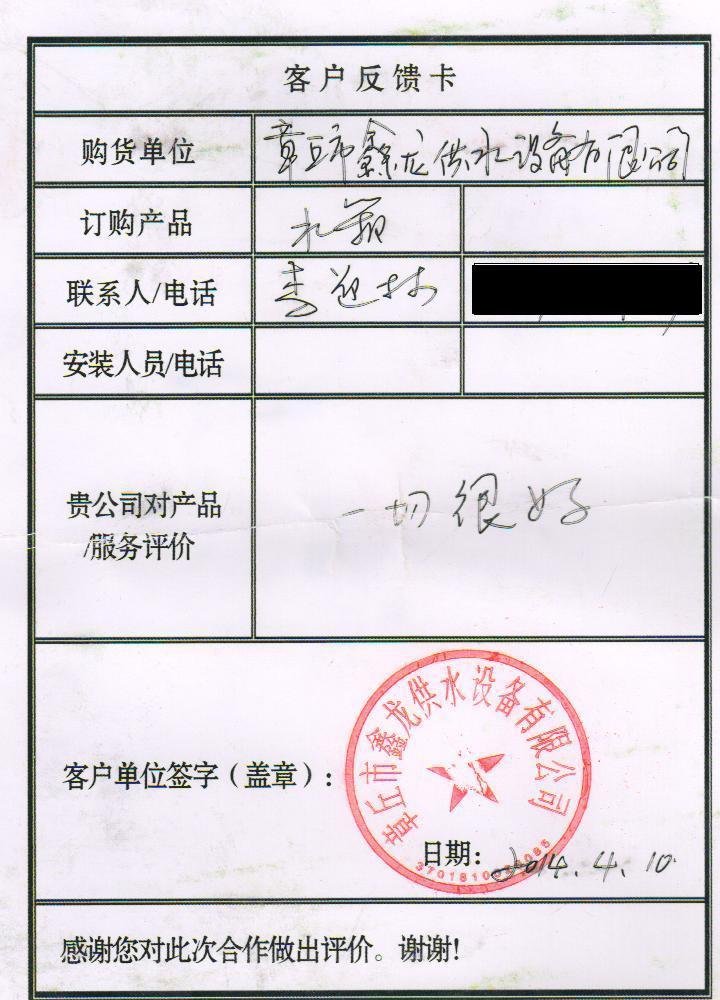 客户反馈卡
购货单位 章丘市鑫龙供水设备有限公司
订购产品 水箱
联系人/电话 李迎林
安装人员/电话
贵公司对产品
/服务评价
一切很好
章丘市鑫龙供水设备有限公司
客户单位签字（盖章）：
日期: 2014.4.10.
感谢您对此次合作做出评价。谢谢!